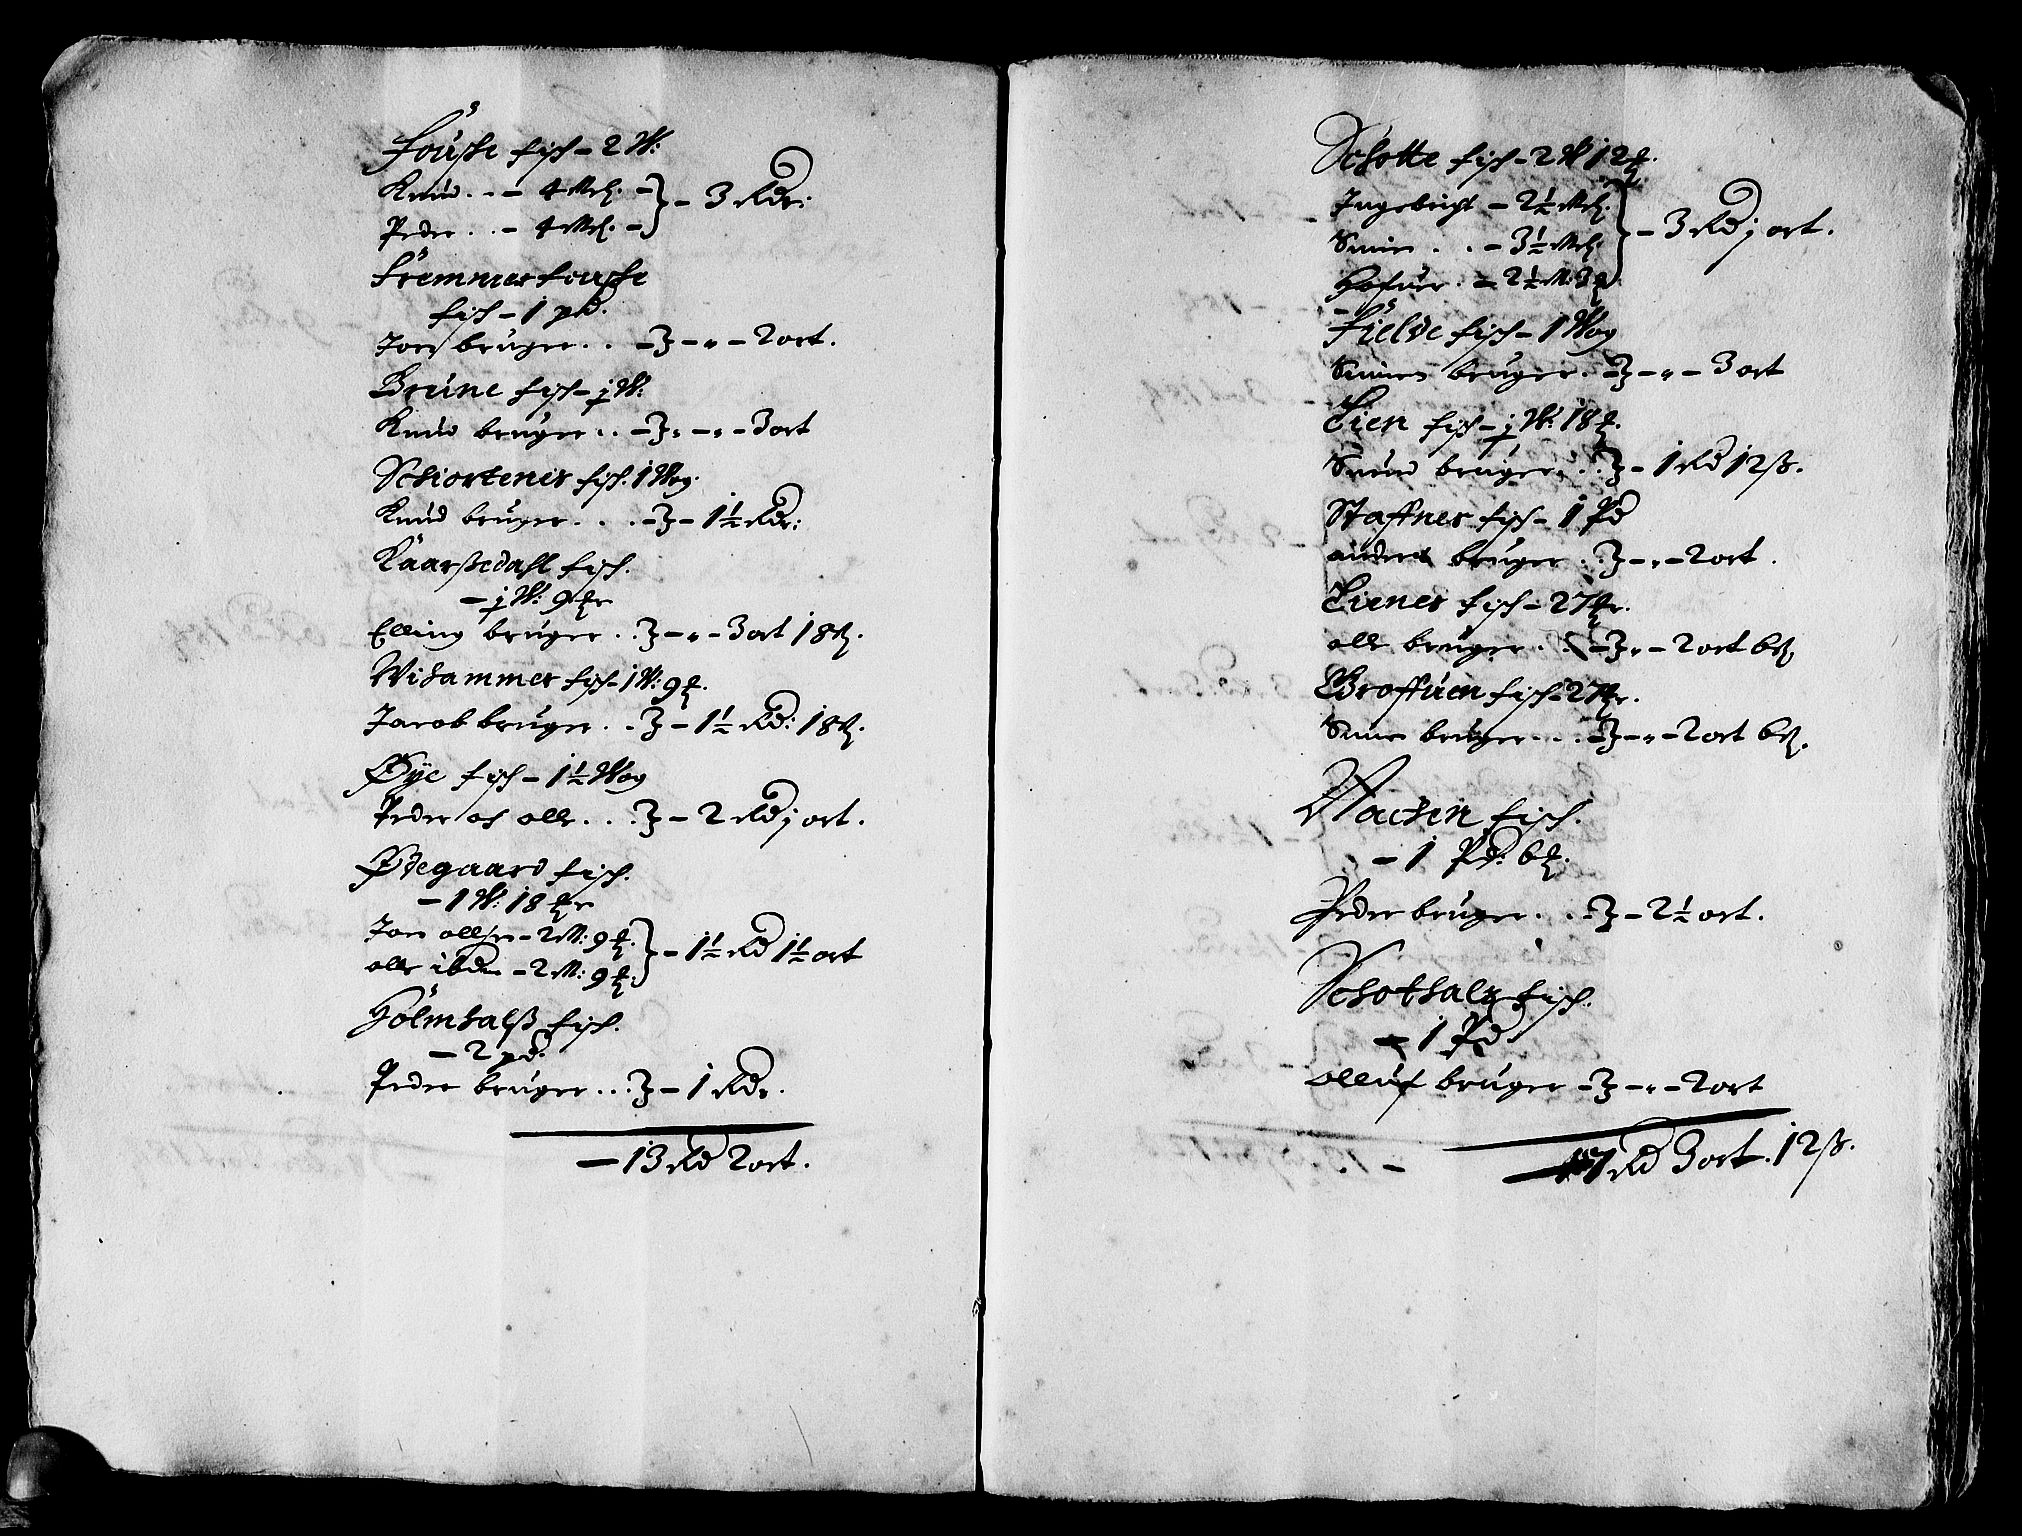 Fouske fisch - 2 W:
Knud . . - 4 Mel. -
Peder . . - 4 Mel. - } - 3 Rdr:
Fremmerfouske
fisch - 1 pd.
Jon bruger . . - 3 - " - 2 ort.
Brune fisch - j W:
Knud bruger . . - 3 - " - 3 ort
Schiortenes fisch. 1 Wog.
Knud bruger . . . - 3 - 1½ Rdr:
Kaarßedahl fisch.
- j W: 9 ₶r
Elling bruger . . 3 - " - 3 ort 18 ß.
Wihammer fisch - 1 W: 9 ₶.
Jacob bruger . . 3 - 1½ Rd: 18 ß.
Øye fisch - 1½ Wog
Peder och olle . . . 3 - 2 Rd j ort.
Ødegaard fisch.
- 1 W: 18 ₶r
Jon ollsen - 2 M: 9 ₶.
olle ibdm - 2 M: 9 ₶. } - 1½ Rd 1½ ort
Holmhalß fisch.
- 2 pd.
Peder bruger . . 3 - 1 Rdr.
- 13 Rd 2 ort.
Schotte fisch - 2 W 12 ₶.
Ingebrigt - 2½ Mel.
Suin . . - 3½ Mel. } - 3 Rd j ort.
- 2½ M: 3 ₶
Fielde fisch - 1 Wog
Suinen bruger . - 3 - " - 3 ort
Lien fisch - j W: 18 ₶.
Suend bruger . . 3 - 1 Rd 12 ß.
Staffnes fisch - 1 Pd
anders bruger . . 3 - " - 2 ort.
Lienes fisch - 27 ₶r.
olle bruger . . - 3 " - 2 ort 6 ß.
Groffuen fisch - 27 ₶r.
Suin bruger . . . - 3 - " - 2 ort 6 ß.
Wachin fisch.
- 1 Pd: 6 ₶.
Peder bruger . . - 3 - 2½ ort.
Schothals fisch.
- 1 Pd
olluf bruger - 3 - " - 2 ort
Rd 3 ort. 12 ß.